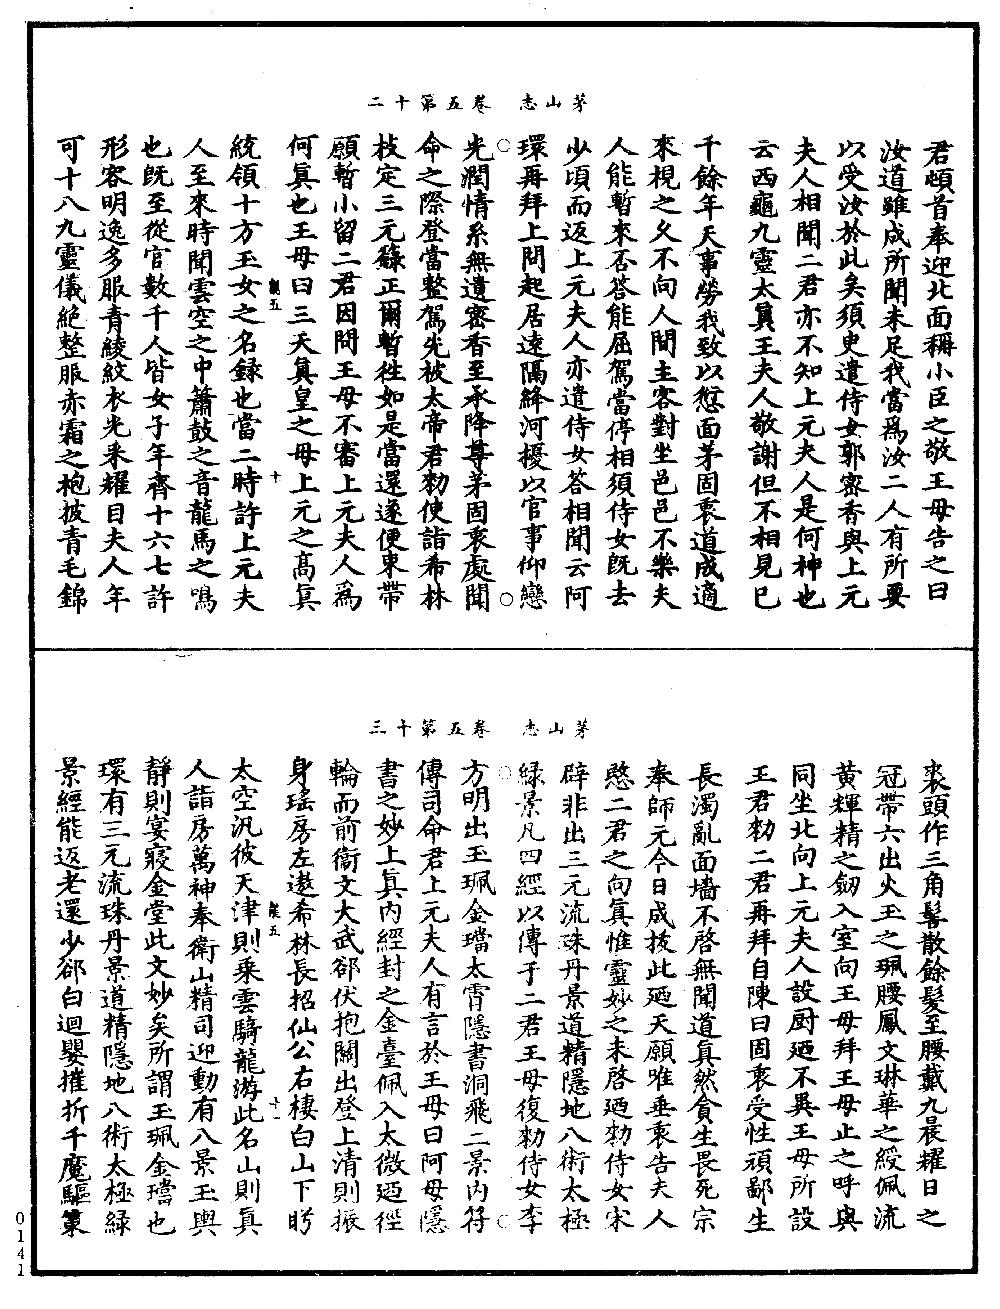 茅山志　卷五第十二
君頓首奉迎北面稱小臣之敬王母告之曰
汝道雖成所聞未足我當爲汝二人有所要
以受汝於此矣須臾遣侍女郭密香與上元
夫人相聞二君亦不知上元夫人是何神也
云西龜九靈太真王夫人敬謝但不相見巳
千餘年天事勞我致以愆面茅固衷道成適
來視之久不向人間主客對坐邑邑不樂夫
人能暫來否答能屈駕當停相須侍女既去
少頃而返上元夫人亦遣侍女答相聞云阿
環再拜上問起居遠隔絳河擾以官事仰戀
光潤情系無遺密香至承降尊茅固衷處聞
命之際登當整駕先被太帝君勑使詣希林
枝定三元籙正爾暫徃如是當還遂便束帶
願暫小留二君因問王母不審上元夫人爲
何真也王母曰三天真皇之母上元之高真
觀五
十
統領十方玉女之名録也當二時許上元夫
人至來時聞雲空之中簫鼓之音龍馬之鳴
也既至從官數千人皆女子年齊十六七許
形容明逸多服青綾紋衣光釆耀目夫人年
可十八九靈儀絶整服赤霜之袍披青毛錦
茅山志　卷五第十三
裘頭作三角髻散餘髮至腰戴九晨耀日之
冠帶六出火玉之珮腰鳳文琳華之綬佩流
黄輝精之劒入室向王母拜王母止之呼與
同坐北向上元夫人設厨廼不異王母所設
王君勑二君再拜自陳曰固衷受性頑鄙生
長濁亂面墻不啓無聞道真然貪生畏死宗
奉師元今日成拔此廼天願唯垂衷告夫人
愍二君之向真惟靈妙之未啓廼勑侍女宋
辟非出三元流珠丹景道精隱地八術太極
緑景凡四經以傳于二君王母復勑侍女李
方明出玉珮金璫太霄隱書洞飛二景内符
傳司命君上元夫人有言於王母曰阿母隱
書之妙上真内經封之金臺佩入太微廼徑
輪而前衞文大武郤伏抱關出登上清則振
身瑶房左遨希林長招仙公右棲白山下眄
觀五
十一
太空汎彼天津則乗雲騎龍游此名山則真
人詣房萬神奉衛山精司迎動有八景玉輿
靜則宴寢金堂此文妙矣所謂玉珮金璫也
環有三元流珠丹景道精隱地八術太極緑
景經能返老還少郤白迴嬰摧折千魔驅策
0141